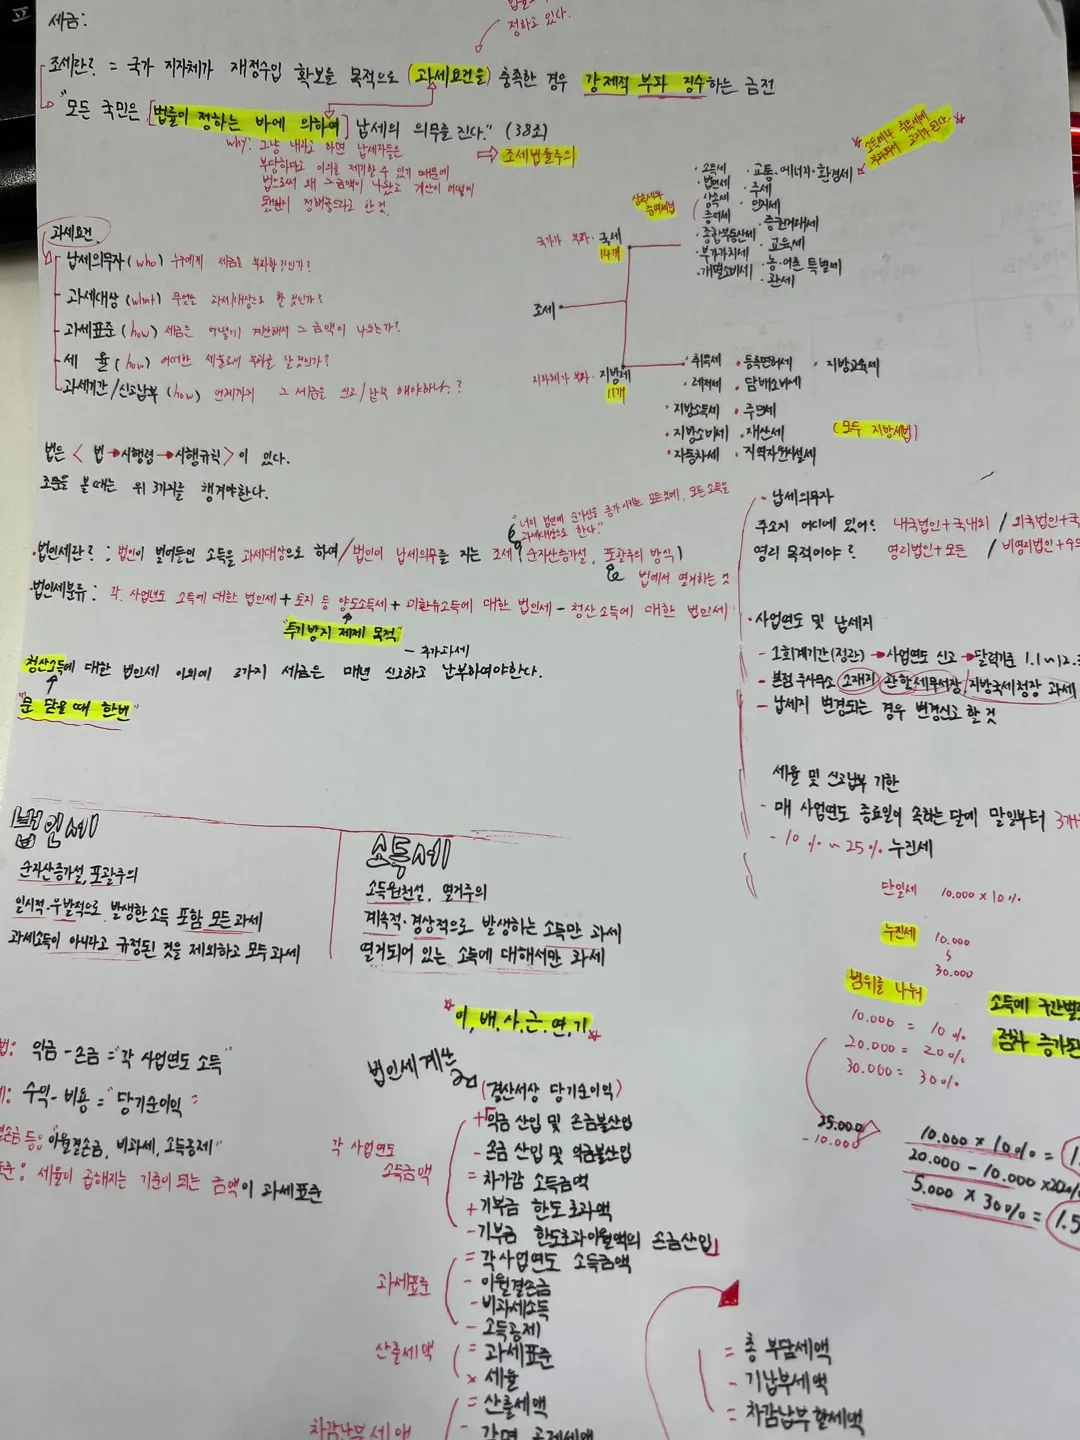 세금:
정하고 있다.
조세란? = 국가 지자체가 재정수입 확보를 목적으로 (과세요건을) 충족한 경우 강제적 부과 징수하는 금전
"모든 국민은 [법률이 정하는 바에 의하여] 납세의 의무를 진다." (38조)
why: 그냥 내라고 하면 납세자들은
부당하다고 이의를 제기할 수 있기 때문에
법으로써 왜 그 금액이 나왔고 계산이 어떻게
됐는지 정해놓으라고 한 것.
⇒ 조세법률주의
과세요건
납세의무자 (who) 누구에게 세금을 부과할것인가?
과세대상 (what) 무엇을 과세대상으로 한 것인가?
과세표준 (how) 세금은 어떻게 계산해서 그 금액이 나오는가?
세 율 (how) 어떠한 세율로써 부과를 할 것인가?
과세기간/신고납부 (how) 언제까지 그 세금을 신고/납부 해야하나?
조세
국가가 부과 · 국세
14개
상속세와
증여세법
· 소득세 · 교통·에너지·환경세
· 법인세 · 주세
상속세 · 인지세
증여세 · 증권거래세
· 종합부동산세 · 교육세
· 부가가치세 · 농·어촌 특별세
· 개별소비세 · 관세
지자체가 부과 · 지방세
11개
· 취득세 · 등록면허세 · 지방교육세
· 레저세 · 담배소비세
· 지방소득세 · 주민세
· 지방소비세 · 재산세
· 자동차세 · 지역자원시설세
(모두 지방세법)
법은 < 법 → 시행령 → 시행규칙 > 이 있다.
조문을 볼 때는 위 3가지를 챙겨야한다.
과세대상으로 한다."
· 법인세란? : 법인이 벌어들인 소득을 과세대상으로 하여/법인이 납세의무를 지는 조세 (순자산증가설, 포괄주의 방식)
법에서 열거하는 것
· 법인세분류 : 각 사업년도 소득에 대한 법인세 + 토지 등 양도소득세 + 미환류소득에 대한 법인세 - 청산소득에 대한 법인세
"투기방지 제제 목적"
- 추가과세
청산소득에 대한 법인세 이외에 3가지 세금은 매년 신고하고 납부하여야한다.
"문 닫을 때 한번"
· 납세의무자
주소지 어디에 있어? 내국법인 + 국내외 / 외국법인 + 국
영리 목적이야? 영리법인 + 모든 / 비영리법인 + 수익
· 사업연도 및 납세지
- 1회계기간(정관) → 사업연도 신고 → 달력기준 1.1~12.3
- 본점 주사무소 소재지 관할세무서장/지방국세청장 과세
- 납세지 변경되는 경우 변경신고 할 것
세율 및 신고납부 기한
- 매 사업연도 종료일이 속하는 달에 말일부터 3개월
- 10% ~ 25% 누진세
단일세 10.000 × 10%
누진세 10.000
30.000
범위를 나눠
10.000 = 10%
20.000 = 20%
30.000 = 30%
소득에 구간별
점차 증가된
25.000
- 10.000
10.000 × 10% = 1.
20.000 - 10.000 × 20%
5.000 × 30% = 1.5
법인세
순자산증가설, 포괄주의
일시적·우발적으로 발생한 소득 포함 모든 과세
과세소득이 아니라고 규정된 것을 제외하고 모두 과세
소득세
소득원천설, 열거주의
계속적·경상적으로 발생하는 소득만 과세
열거되어 있는 소득에 대해서만 과세
법: 익금 - 손금 = "각 사업연도 소득"
수익 - 비용 = "당기순이익"
결손금 등: "이월결손금, 비과세, 소득공제"
표준: 세율이 곱해지는 기준이 되는 금액이 과세표준
이, 배, 사, 근, 연, 기
법인세계산
(결산서상 당기순이익)
각 사업연도
소득금액
+ 익금 산입 및 손금불산입
- 손금 산입 및 익금불산입
= 차가감 소득금액
+ 기부금 한도초과액
- 기부금 한도초과이월액의 손금산입
= 각사업연도 소득금액
과세표준
- 이월결손금
- 비과세소득
- 소득공제
산출세액
= 과세표준
× 세율
= 산출세액
차감납부세액
- 감면 공제세액
= 총 부담세액
- 기납부세액
= 차감납부할세액